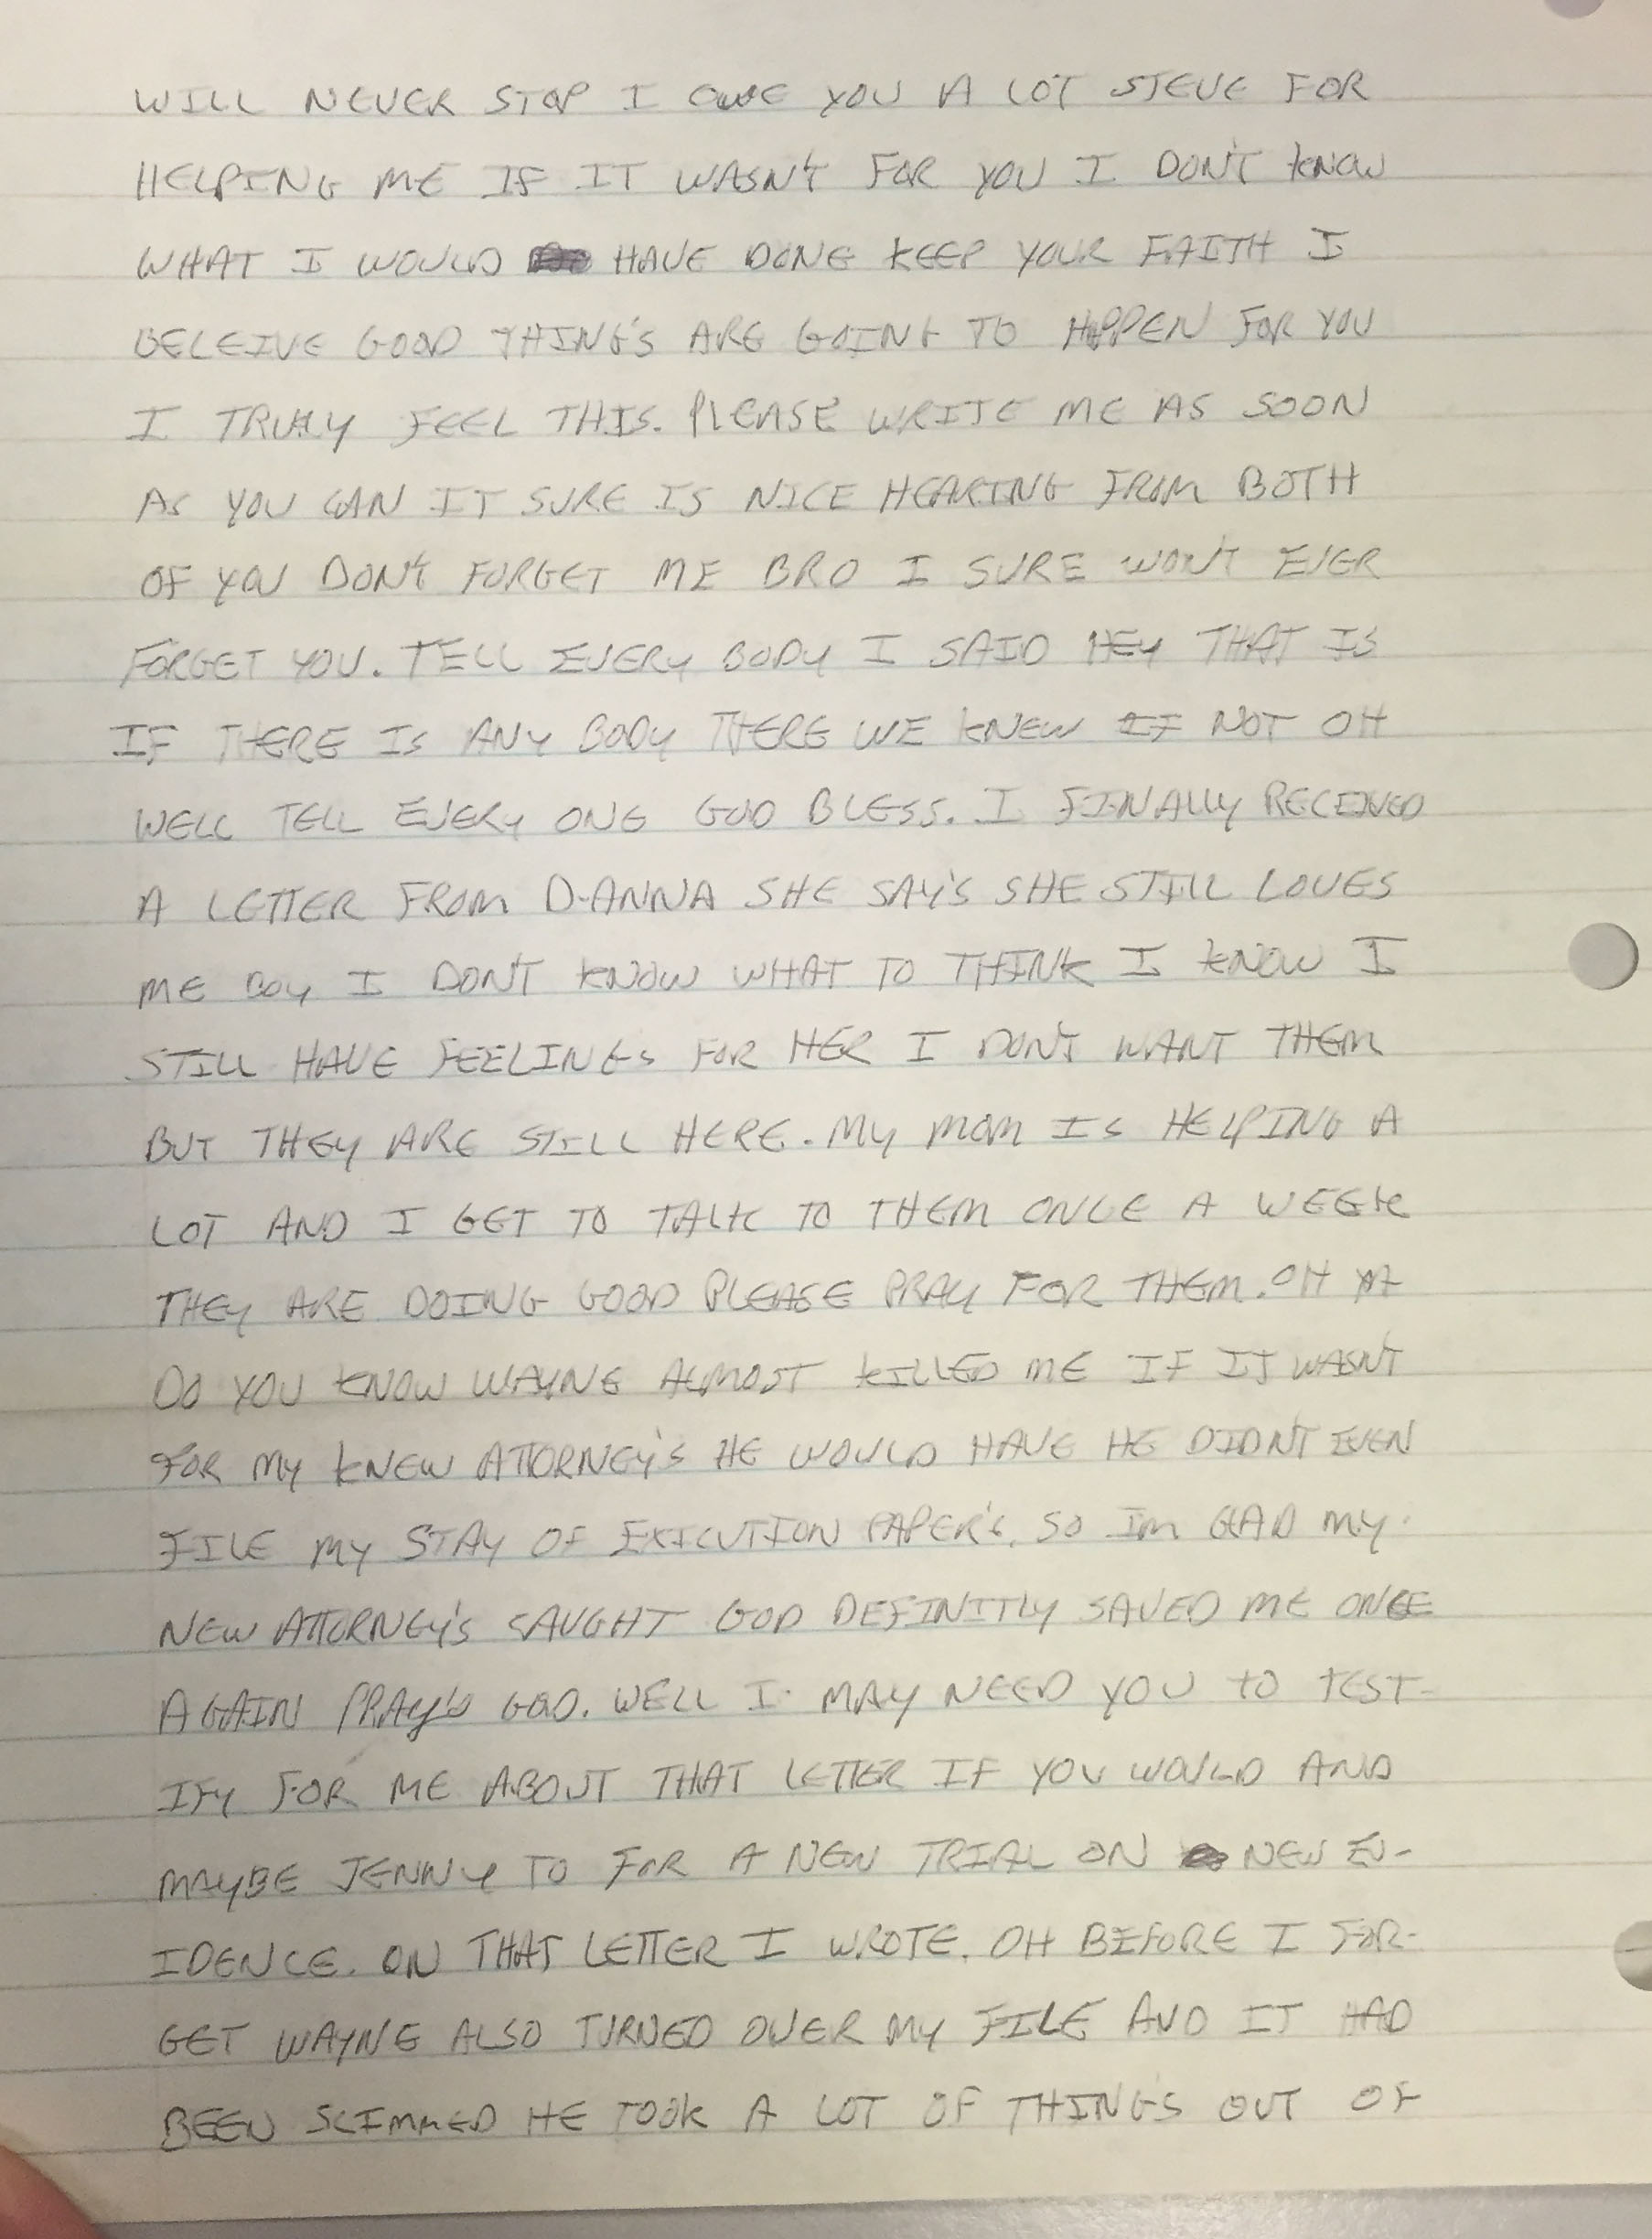 WILL NEVER STOP I OWE YOU A LOT STEVE FOR
HELPING ME IF IT WASN'T FOR YOU I DON'T KNOW
WHAT I WOULD HAVE DONE KEEP YOUR FAITH I
BELEIVE GOOD THING'S ARE GOING TO HAPPEN FOR YOU
I TRULY FEEL THIS. PLEASE WRITE ME AS SOON
AS YOU CAN IT SURE IS NICE HEARING FROM BOTH
OF YOU DON'T FORGET ME BRO I SURE WON'T EVER
FORGET YOU. TELL EVERY BODY I SAID HEY THAT IS
IF THERE IS ANY BODY THERE WE KNEW IF NOT OH
WELL TELL EVERY ONE GOD BLESS. I FINALLY RECEIVED
A LETTER FROM D-ANNA SHE SAY'S SHE STILL LOVES
ME BOY I DON'T KNOW WHAT TO THINK I KNOW I
STILL HAVE FEELINGS FOR HER I DON'T WANT THEM
BUT THEY ARE STILL HERE. MY MOM IS HELPING A
LOT AND I GET TO TALK TO THEM ONCE A WEEK
THEY ARE DOING GOOD PLEASE PRAY FOR THEM. OH
DO YOU KNOW WAYNE ALMOST KILLED ME IF IT WASN'T
FOR MY KNEW ATTORNEY'S HE WOULD HAVE HE DIDN'T EVEN
FILE MY STAY OF EXICUTION PAPER'S. SO IM GLAD MY
NEW ATTORNEY'S CAUGHT GOD DEFINITLY SAVED ME ONCE
AGAIN PRAY'S GOD. WELL I MAY NEED YOU TO TEST-
IFY FOR ME ABOUT THAT LETTER IF YOU WOULD AND
MAYBE JENNY TO FOR A NEW TRIAL ON NEW EV-
IDENCE. ON THAT LETTER I WROTE. OH BEFORE I FOR-
GET WAYNE ALSO TURNED OVER MY FILE AND IT HAD
BEEN SCIMMED HE TOOK A LOT OF THING'S OUT OF